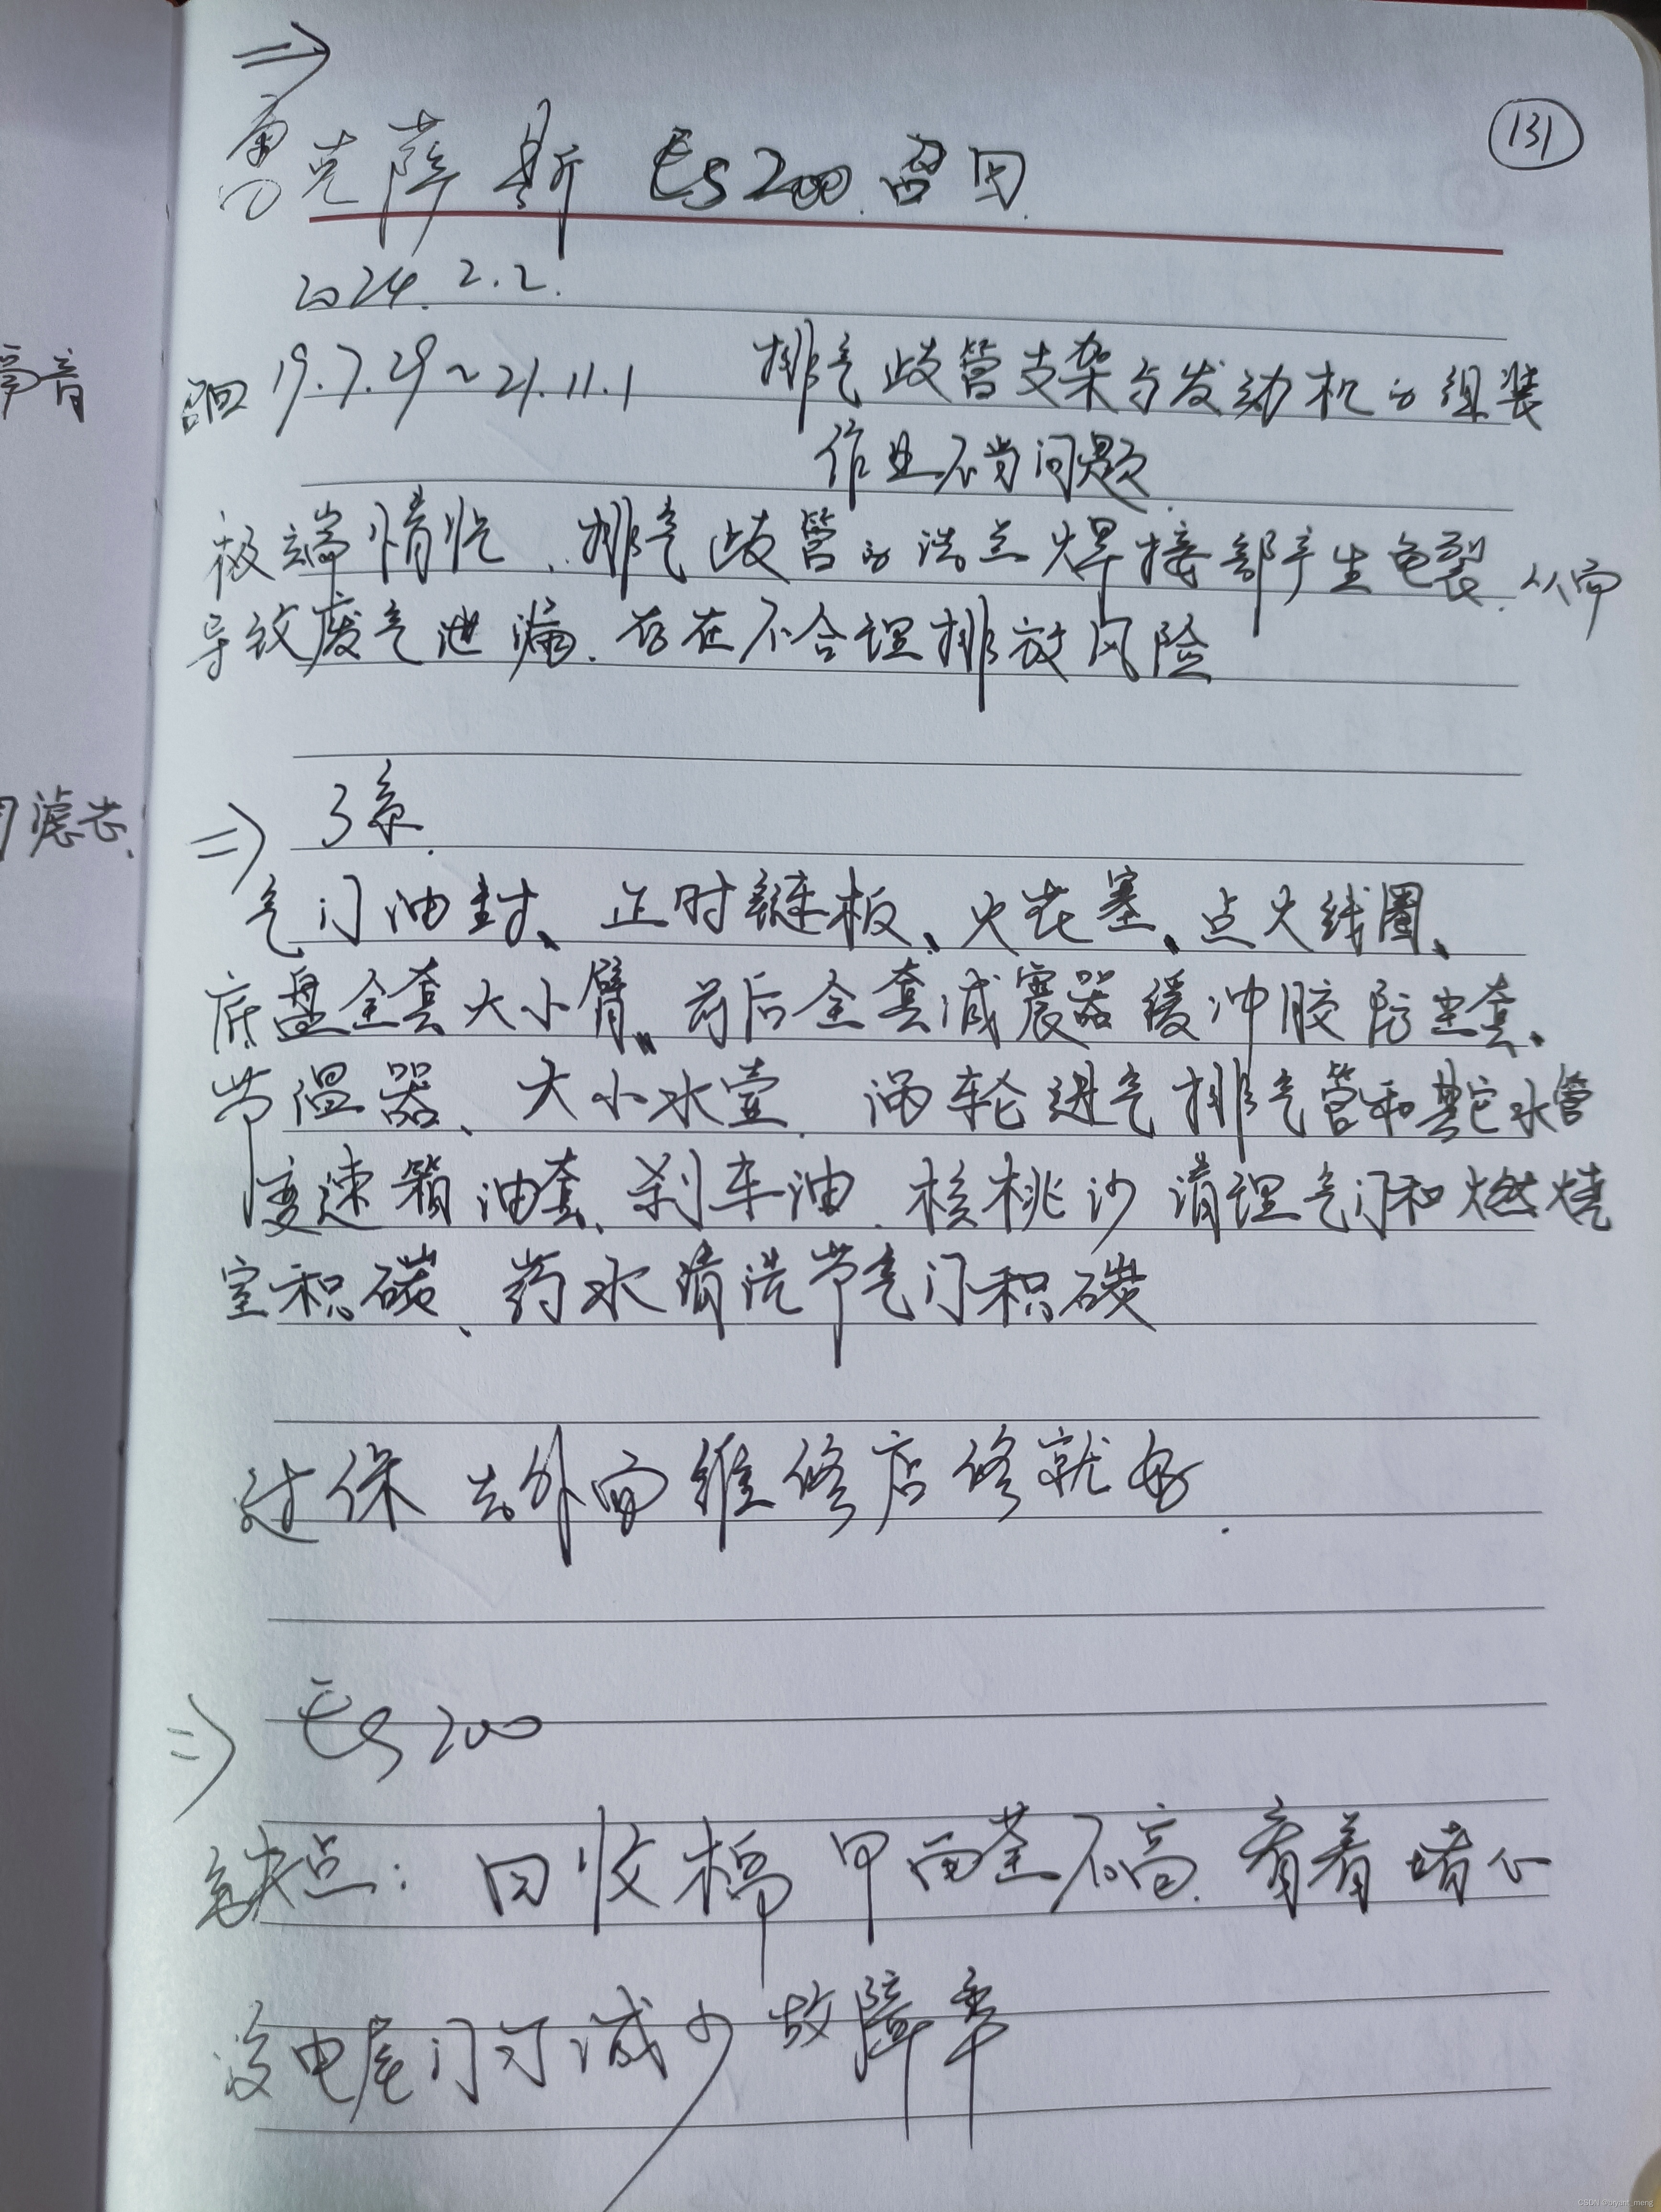 ⇒
131
雷克萨斯 ES200 召回
2024.2.2.
召回 19.7.29~21.11.1 排气歧管支架与发动机的组装
作业不当问题
极端情况, 排气歧管的法兰焊接部产生龟裂, 从而
导致废气泄漏. 存在不合理排放风险
争音
⇒ 3系.
滤芯、
气门油封、正时链板、火花塞、点火线圈、
底盘全套大小臂、前后全套减震器缓冲胶防尘套、
节温器、大小水壶、涡轮进气排气管和其它水管
变速箱油套、刹车油、核桃沙清理气门和燃烧
室积碳、药水清洗节气门积碳
过保 去外面维修店修就好.
⇒ ES200
缺点: 回收标 甲面差不高. 看着堵心
没电尾门 可减少故障率
CSDN @bryant_meng